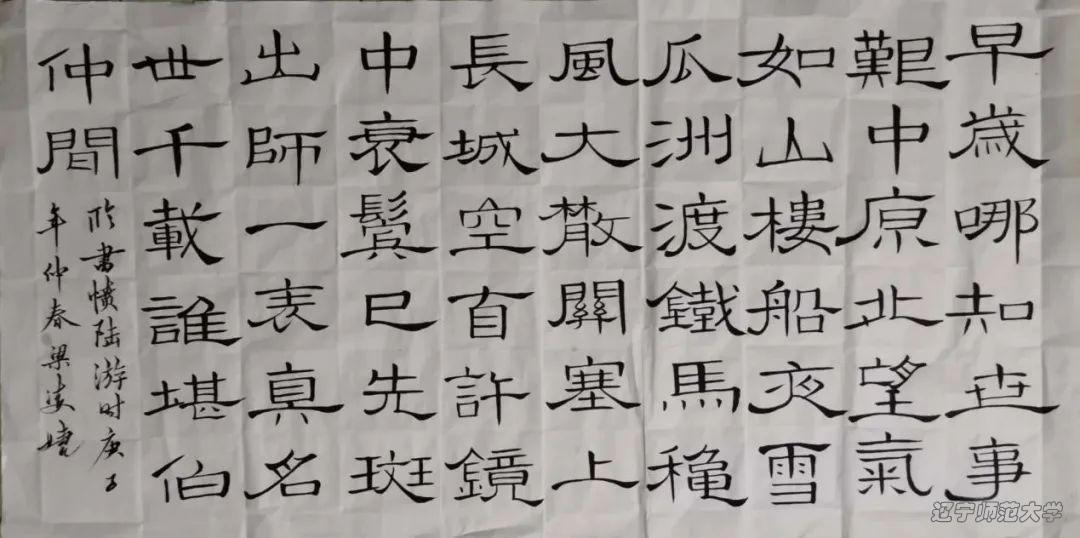 早歲哪知世事
艱中原北望氣
如山樓船夜雪
瓜洲渡鐵馬穐
風大散關塞上
長城空自許鏡
中衰鬢已先斑
出師一表真名
世千載誰堪伯
仲間
書憤陸游时庚子
年仲春梁
辽宁师范大学